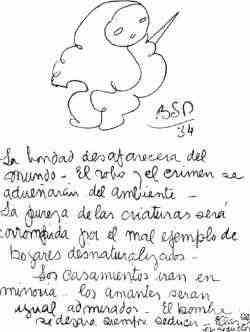 BSP
34
La bondad desaparecera del
mundo - El robo y el crimen se
adueñarán del ambiente -
La pureza de las criaturas será
corrompida por el mal ejemplo de
hogares desnaturalizados -
Los casamientos iran en
menoria - los amantes seran
igual admirados - El hombre
se dejara siempre seducir